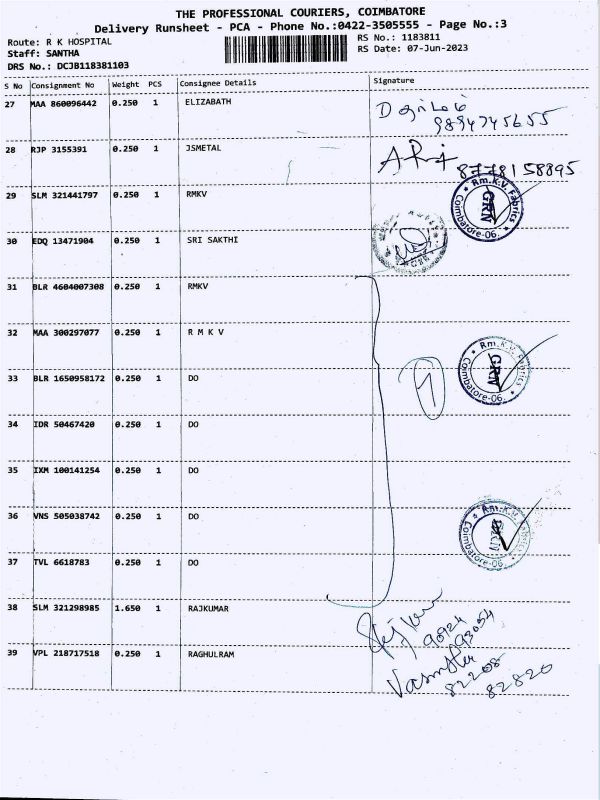 THE PROFESSIONAL COURIERS, COIMBATORE
Delivery Runsheet - PCA - Phone No.:0422-3505555 - Page No.:3
Route: R K HOSPITAL
Staff: SANTHA
DRS No.: DCJB118381103
RS No.: 1183811
RS Date: 07-Jun-2023
S No Consignment No Weight PCS Consignee Details Signature
27 MAA 860096442 0.250 1 ELIZABATH
9894745655
28 RJP 3155391 0.250 1 JSMETAL
8778158895
29 SLM 321441797 0.250 1 RMKV
Rm.K.V. Fabrics GRN Coimbatore-06.
30 EDQ 13471904 0.250 1 SRI SAKTHI
31 BLR 4604007308 0.250 1 RMKV
32 MAA 300297077 0.250 1 R M K V
Rm.K.V. Fabrics GRN Coimbatore-06.
33 BLR 1650958172 0.250 1 DO
7
34 IDR 50467420 0.250 1 DO
35 IXM 100141254 0.250 1 DO
36 VNS 505038742 0.250 1 DO
Rm.K.V. Fabrics GRN Coimbatore-06.
37 TVL 6618783 0.250 1 DO
38 SLM 321298985 1.650 1 RAJKUMAR
90924 93054
39 VPL 218717518 0.250 1 RAGHULRAM
82208 82820